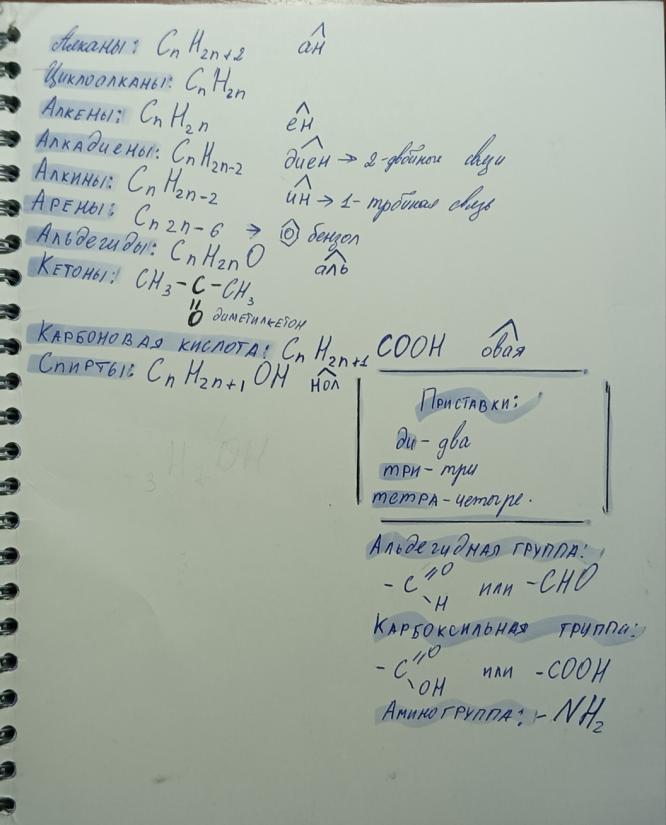 Алканы: CnH2n+2 ан
Циклоалканы: CnH2n
Алкены: CnH2n ен
Алкадиены: CnH2n-2 диен → 2-двойные связи
Алкины: CnH2n-2 ин → 1-тройная связь
Арены: Cn2n-6 → бензол
Альдегиды: CnH2nO аль
Кетоны: CH3-C-CH3
=
O диметилкетон
Карбоновая кислота: CnH2n+1 COOH овая
Спирты: CnH2n+1 OH нол
Приставки:
ди- два
три- три
тетра-четыре.
Альдегидная группа:
-C=O или -CHO
\H
Карбоксильная группа:
-C=O или -COOH
\OH
Аминогруппа: -NH2